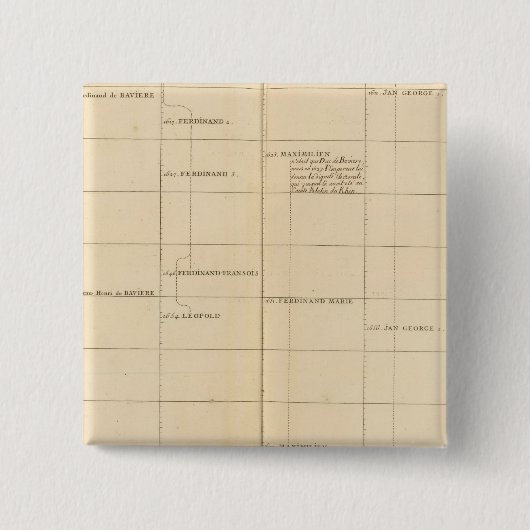 rdinand de BAVIERE
1611. JAN GEORGE 1.
1617. FERDINAND 2.
1623. MAXIMILIEN
n'étoit que Duc de Baviere,
1627. FERDINAND 3.
1646. FERDINAND FRANSOIS
Henri de BAVIERE
1651. FERDINAND MARIE
1654. LÉOPOLD
1656. JAN GEORGE 2.
MAXIMILIEN